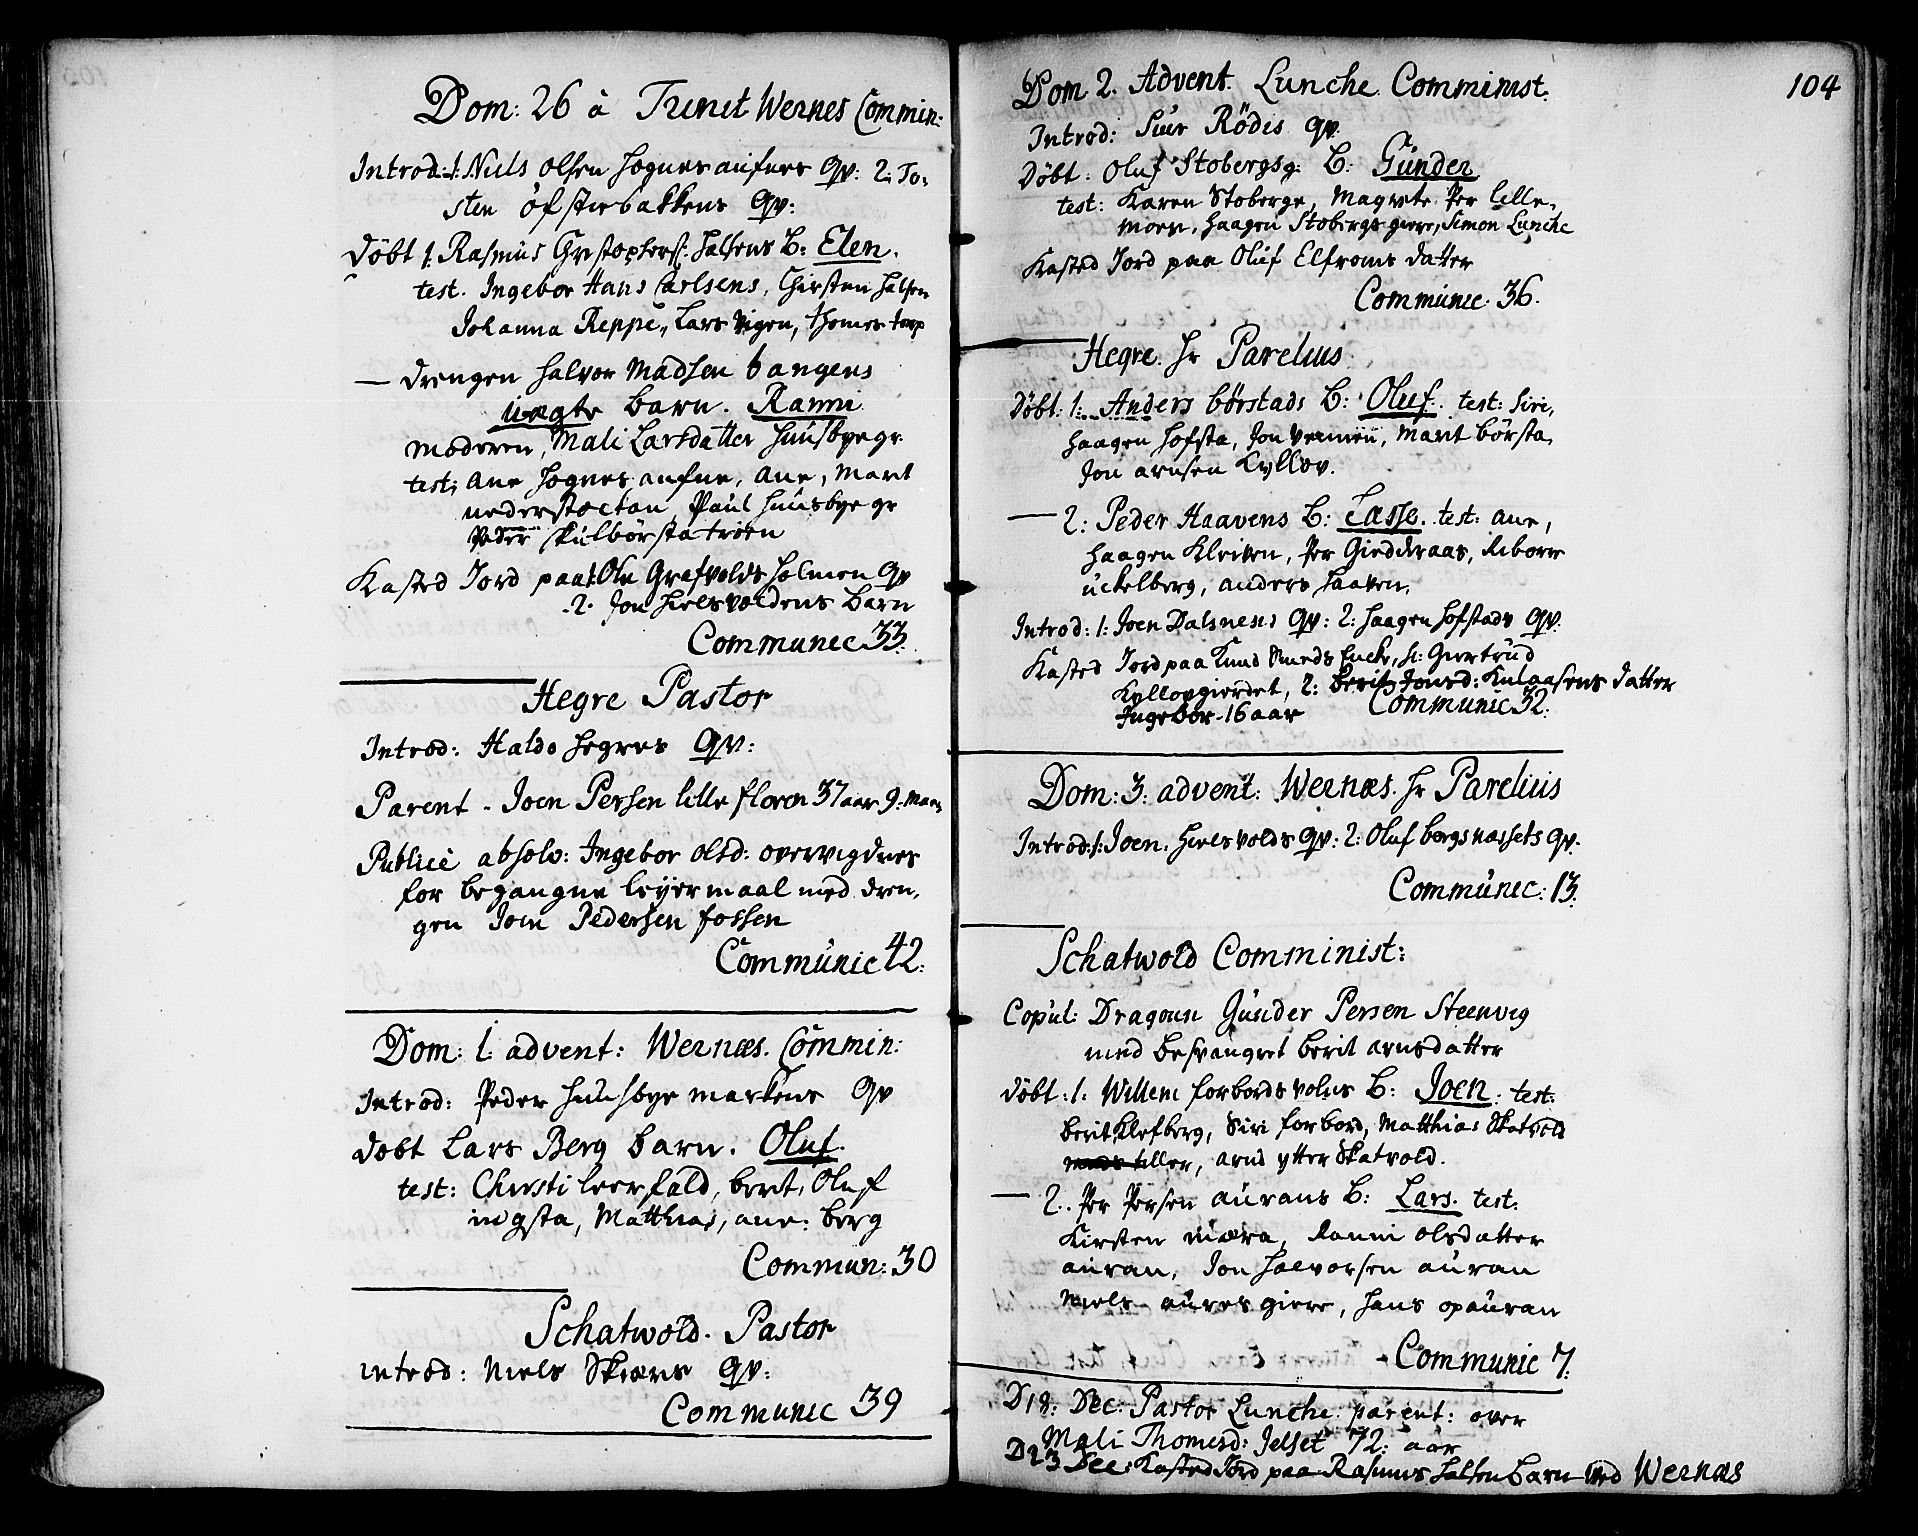 Dom: 26 à Trinit Wernes Commin:
Introd: 1: Niels Olsen Hognesaunes Qv: 2: To-
sten öfstebakkens Qv:
Döbt 1. Rasmus Christophers: Halsens B: Elen.
test. Ingebor Hans Carlsens, Chirsten Halsen
Johanna Reppe, Lars Vigen, Thomes torp
— Drengen Halvor Madsen bangens
üægte barn. Ranni
moderen, Mali Larsdatter Huusbye gr.
test: Ane Hognesaufne, Ane, Marit
nederstoetan, Paul Huusbye gr
Peder Skulbörstatröen
Kasted Jord paa 1. Ole Grafvolds Holmen Qv
2. Jon Hielsvoldens Barn
Communec 33.
Hegre Pastor
Introd: Haldo Hegres Qv:
Parent - Joen Persen lille floren 37 aar 9: maan
Publicè absolv: Ingebor Olsd: overvigdnes
for begangne leyermaal med dren,
gen Joen Pedersen fossen
Communic 42:
Dom: 1: advent: Wernæs. Commin:
Introd: Peder Huusbye markens Qv
Döbt Lars Berg barn. Oluf.
test: Christi leerfald, berit, Oluf
ingsta, Matthias, ane: berg
Commun: 30
Schatwold. Pastor
introd: Niels Skiærs Qv:
Communec 39
104
Dom 2. Advent. Lunche Comminist:
Introd: Siur Rödes qv.
Döbt: Oluf Stobergsg: B: Gunder
test: Karen Stoberge, Magrete Per lille-
moen, Haagen Stobergs giere, Simon Lunche
Kasted Jord paa Oluf Elfroms datter
Communec. 36.
Hegre. Hr Parelius
Döbt: 1: Anders börstads B: Oluf. test: Siri,
Haagen Hofsta, Jon , Marit börsta,
Jon arnsen Kyllov.
— 2: Peder Haavens B: Lasse. test: ane,
Haagen Kleiven, Per Giedderaas, Reborr
uckelberg, anders Haaven.
Introd: 1: Joen Dalsnens Qv: 2: Haagen Hofstads Qv.
Kasted Jord paa Knud Smeds Encke, sl: Giertrud
Kyllovgierdet, 2: berit Jonsd: Kulaasens datter
Ingebor - 16 aar Communic 32:
Dom: 3: advent: Wernæs. Hr Parelius
Introd: 1: Joen. Hielsvolds Qv: 2: Oluf bergsnæssets Qv.
Communec: 13.
Schatwold Comminist:
Copul: Dragoun Gunder Persen Steenveg
med besvangret berit arnsdatter
Döbt: 1: Willem forbords volds B: Joen. test:
berit Klefberg, Siri forbord, Matthias Skatvold
tiller, arnd ytter Skatvold.
— 2. Per Persen aurans B: Lars. test:
Kirsten mæra, Ranni olsdatter
auran, Jon Halvorsen auran
Niels aunes giere, Hans opauran
Communic 7:
D 18: Dec: Pastor Lunche parent: over
Mali Thomesd: Jelset 72: aar
D 23 Dec: Kasted Jord paa Rasmus Halsen barn ved Wernæs